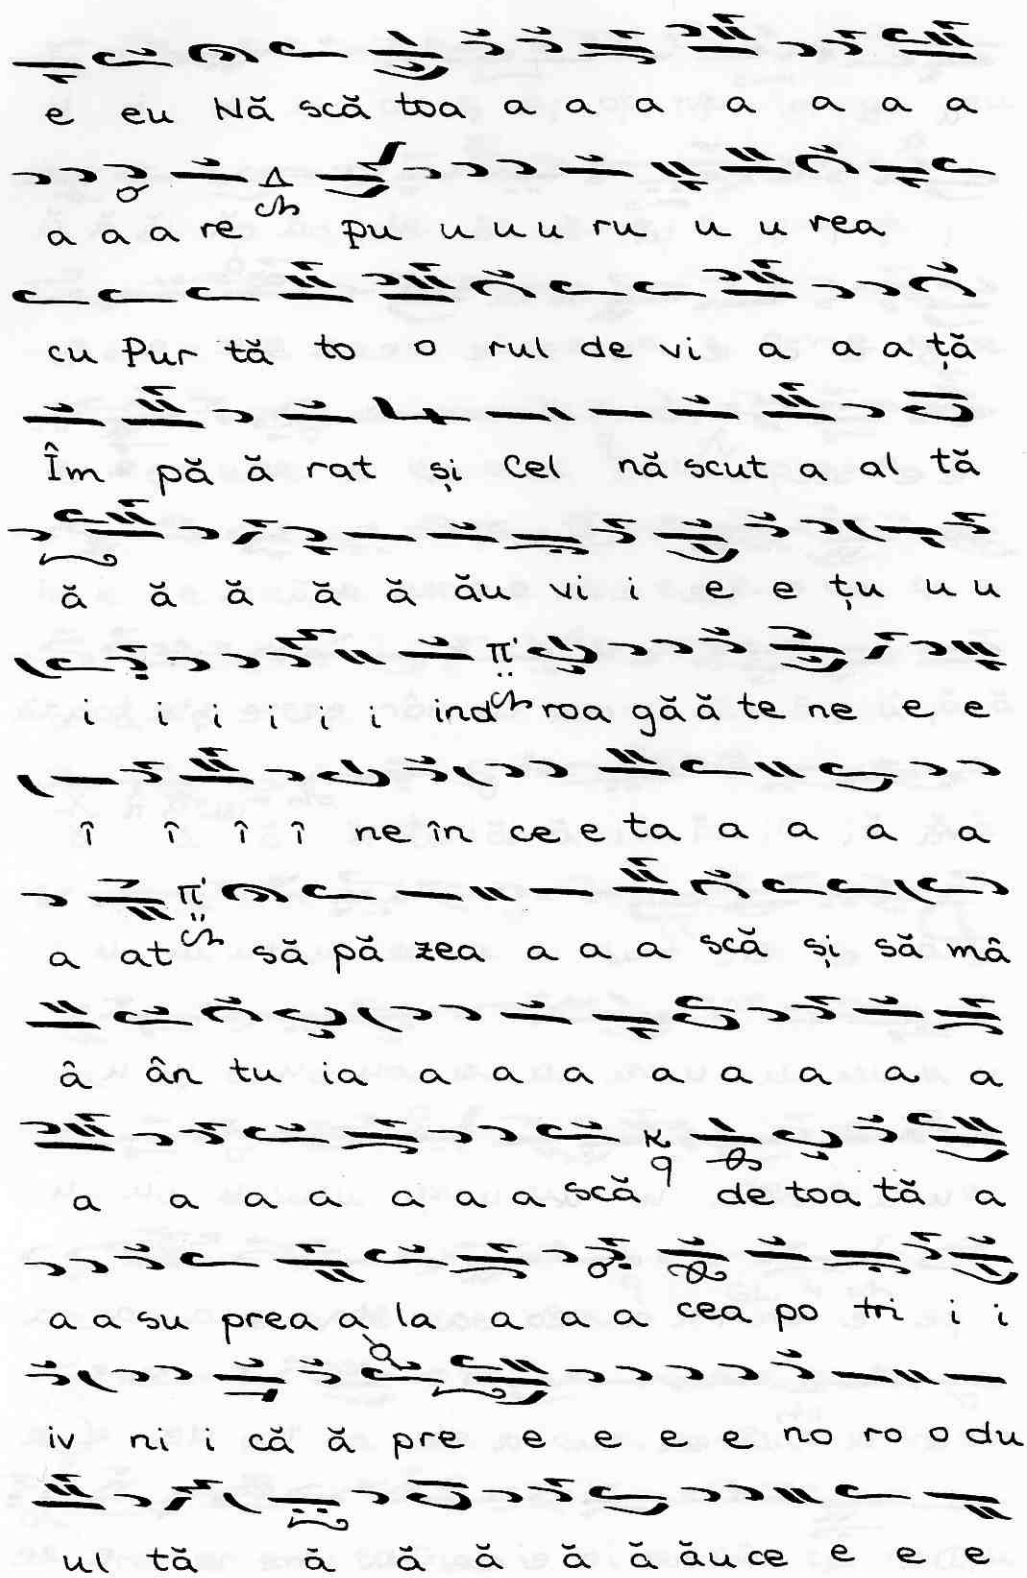 e eu Nă scă toa a a a a a a a
a a a re pu u u u ru u u rea
cu Pur tă to o rul de vi a a a ță
Îm pă ă rat și Cel nă scut a al tă
ă ă ă ă ă ău vi i e e țu u u
i i i i i i ind roa gă ă te ne e e
î î î î ne în ce e ta a a a a
a at să pă zea a a a scă și să mâ
â ân tu ia a a a a a a a a
a a a a a a a scă de toa tă a
a a su prea a la a a a cea po tri i i
iv ni i că ă pre e e e e no ro o du
ul tă ă ă ă ă ă ău ce e e e